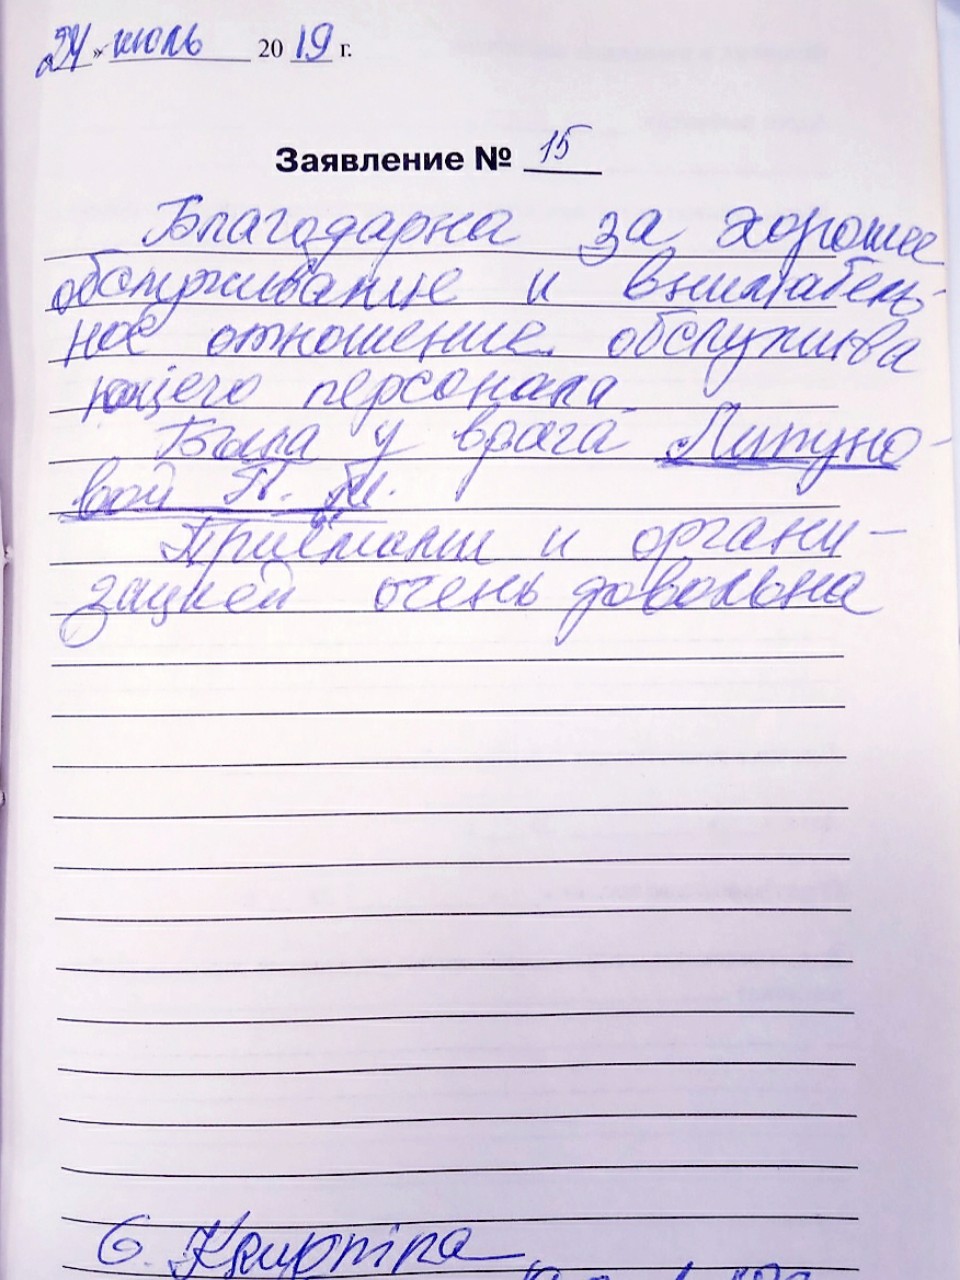 24 » июль 2019 г.
Заявление № 15
Благодарна за хорошее
обслуживание и вниматель-
ное отношение обслужива
ющего персонала
Была у врача Липуно-
вой П. М.
Приёмом и органи-
зацией очень довольна